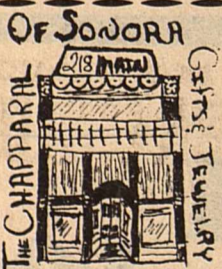 THE CHAPPARAL
OF SONORA
218 MAIN
GIFTS & JEWELRY